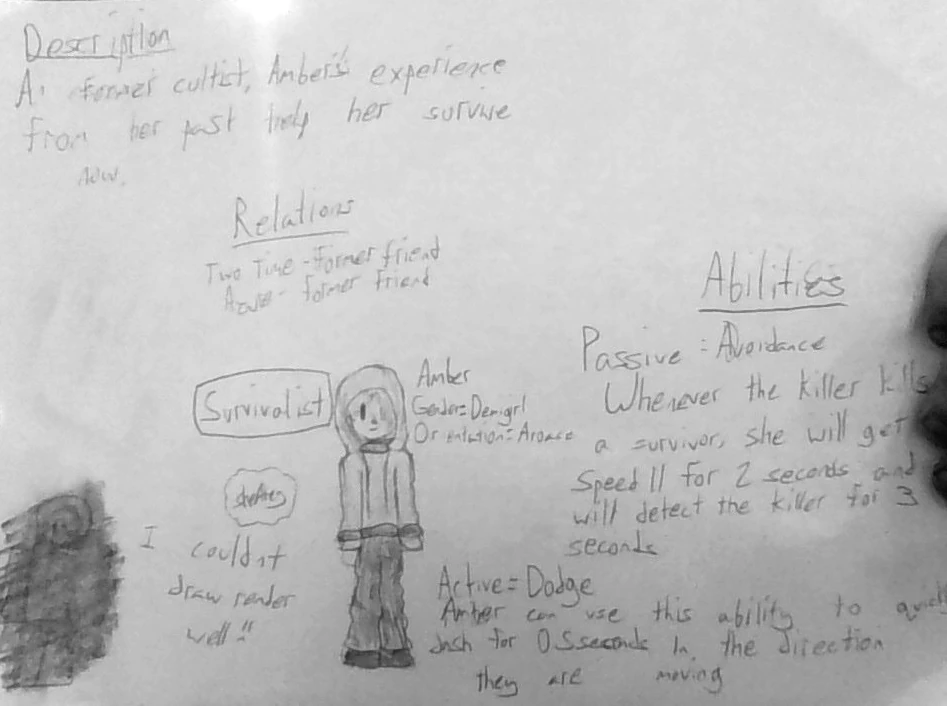 Description
A former cultist, Amber's experience
from her past help her survive
now.
Relations
Two Time - former friend
Azure - former friend
Abilities
Passive = Avoidance
Whenever the killer kills
a survivor, she will get
Speed II for 2 seconds and
will detect the killer for 3
seconds
Survivalist
Amber
Gender = Demigirl
Orientation = Aroace
she/they
I
couldnt
draw render
well!!
Active = Dodge
Amber can use this ability to
dash for 0.5 seconds in the direction
they are moving